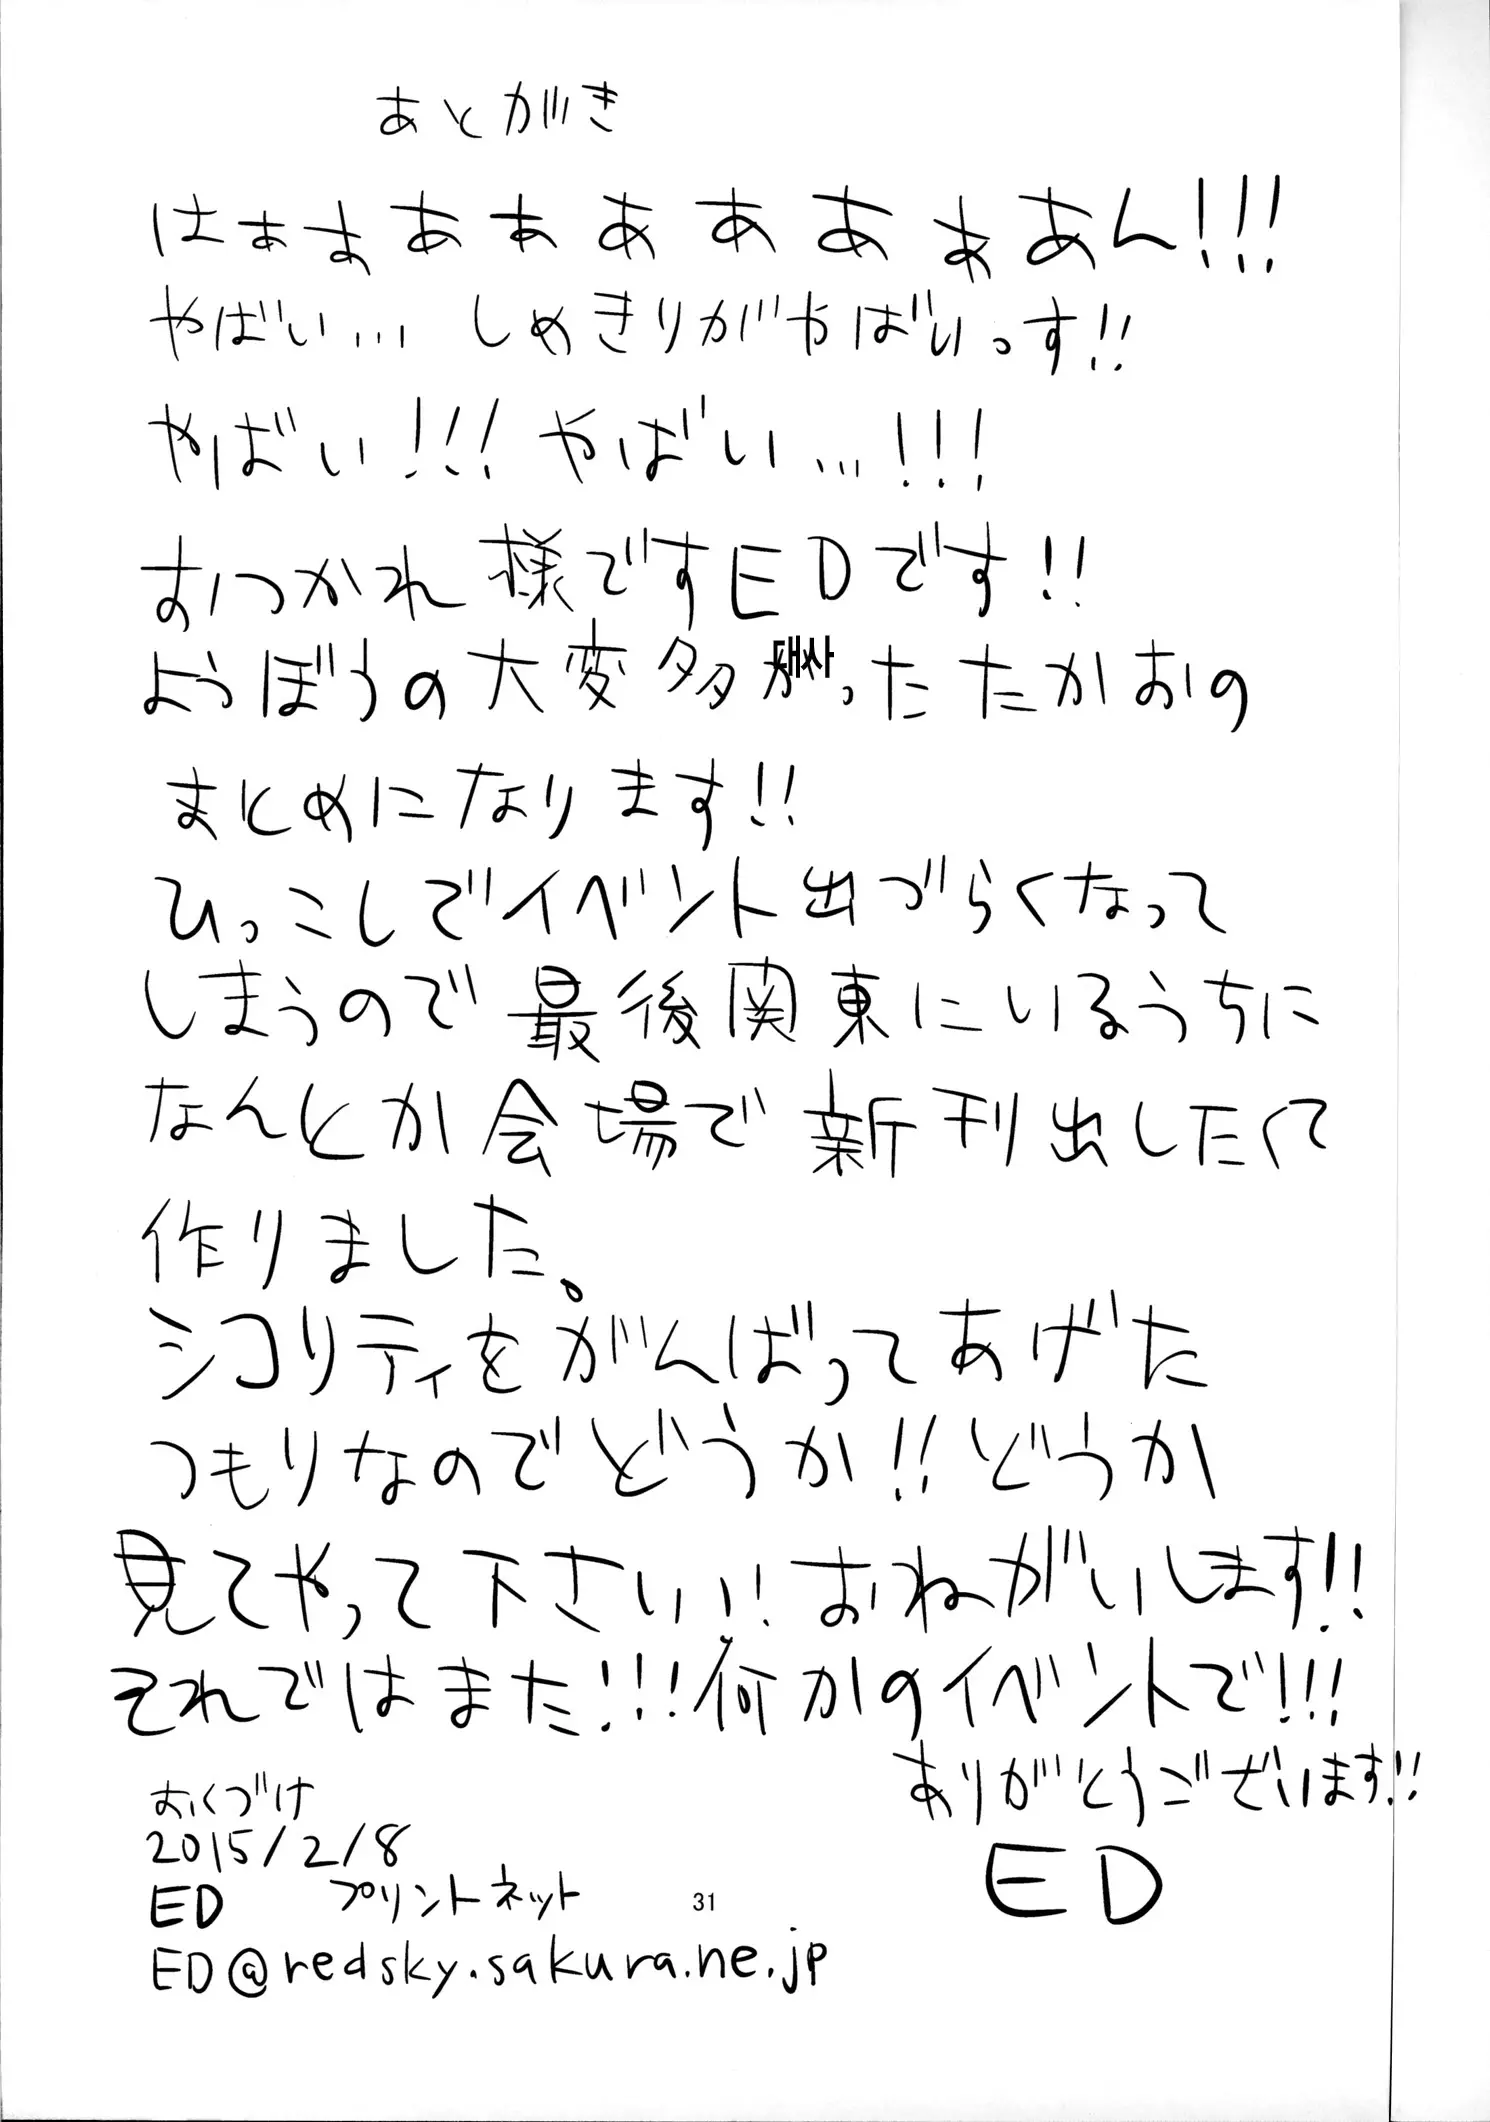 あとがき
はぁぁあぁあああぁあん!!!
やばい… しめきりがやばいっす!!
やばい!!! やばい…!!!
おつかれ様ですEDです!!
ようぼうの大変多かったたかおの
대사
まとめになります!!
ひっこしでイベント出づらくなって
しまうので最後関東にいるうちに
なんとか会場で新刊出したくて
作りました。
シコリティをがんばってあげた
つもりなのでどうか!!どうか
見てやって下さい!!おねがいします!!
それではまた!!!何かのイベントで!!!
ありがとうございます!!
ED
おくづけ
2015/2/8
ED プリントネット
31
ED@redsky.sakura.ne.jp